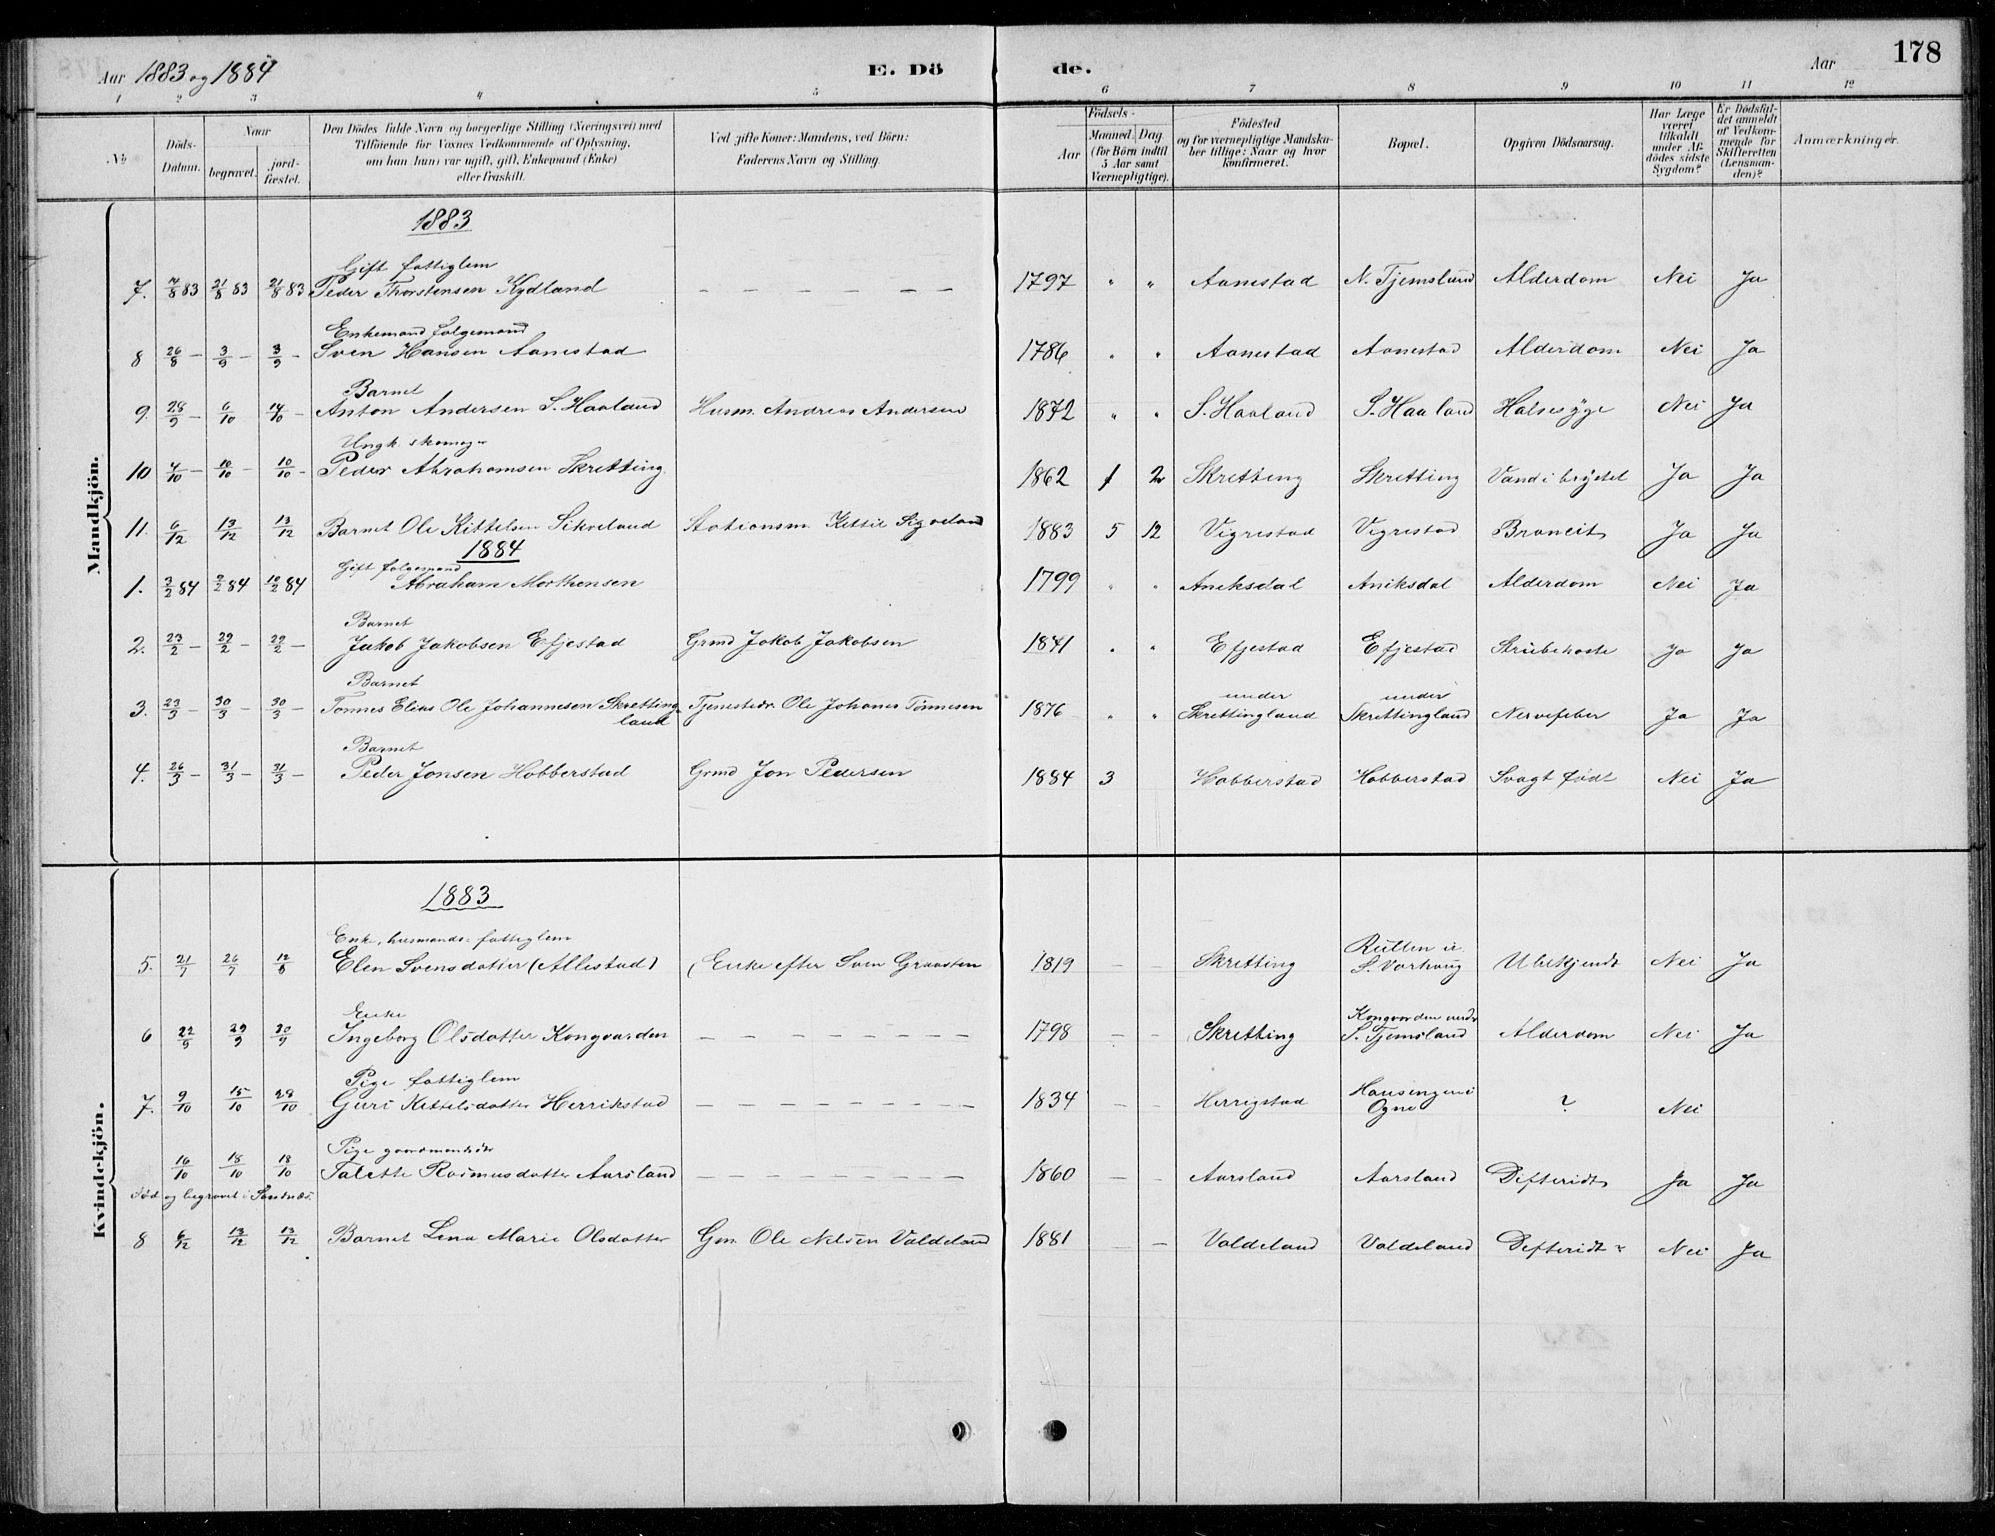 Aar 1883 og 1884 E. Dö de. Aar 178
1 2 3 4 5 6 7 8 9 10 11 12
No Döds-Datum. Naar begravet. jord-fæstet. Den Dödes fulde Navn og borgerlige Stilling (Næringsvei) med Tilföiende for Voxnes Vedkommende af Oplysning, om han (hun) var ugift, gift, Enkemand (Enke) eller fraskilt. Ved gifte Koner: Mandens, ved Börn: Faderens Navn og Stilling. Födsels- Aar Maaned. Dag. (for Börn indtil 5 Aar samt Værnepligtige). Födested og for værnepligtige Mandska-ber tillige: Naar og hvor konfirmeret. Bopæl. Opgiven Dödsaarsag. Har Læge været tilkaldt under Af-dödes sidste Sygdom? Er Dödsfal-det anmeldt af Vedkom-mende for Skifteretten (Lensman-den)? Anmærkninger.
Mandkjön.
1883
Gift fattiglem
7. 7/8 83 21/8 83 21/8 83 Peder Thorstensen Kydland — — — — — — 1797 " " Aanestad N. Tjemsland Alderdom Nei Ja
Enkemand folgemand
8 26/8 — 3/9 — 3/9 — Sven Hansen Aanestad 1786 " " Aanestad Aanestad Alderdom Nei Ja
Barnet
9. 28/9 — 6/10 14/10 — Anton Andersen S. Haaland Husm. Andreas Andersen 1872 " " S. Haaland S. Haaland Halsesyge Nei Ja
Ungk. skomager
10 4/10 — 10/10 — 10/10 — Peder Abrahamsen Skretting 1862 1 2 Skretting Skretting Vand i brystet Ja Ja
11. 6/12 13/12 13/12 Barnet Ole Kittelsen Sikveland Stationsm. Kittil Sigveland 1883 5 12 Vigrestad Vigrestad Broncit Ja Ja
1884
Gift folgemand
1. 3/2 84 9/2 84 10/2 84 Abraham Morthensen 1799 " " Aniksdal Aniksdal Alderdom Nei Ja
Barnet
2. 23/2 — 29/2 — 29/2 — Jakob Jakobsen Efjestad Grmd Jakob Jakobsen 1871 " " Efjestad Efjestad Strubehoste Ja Ja
Barnet under under
3. 23/3 — 30/3 — 30/3 — Tönnes Elias Ole Johannesen Skretting- Tjenestedr. Ole Johanes Tönnesen 1876 " " Skrettingland Skrettingland Nervefeber Ja Ja
land
Barnet
4. 26/3 — 31/3 — 31/3 — Peder Jonsen Hobberstad Grmd Jon Pedersen 1884 3 Hobberstad Hobberstad Svagt födt Nei Ja
Kvindekjön.
1883
Enke, husmands- fattiglem Rutlen u.
5. 21/7 26/7 12/8 Elen Svensdatter (Allestad) (Enke efter Sven Graasten 1819 — — Skretting S. Varhaug Ubekjendt Nei Ja
Enke Kongvarden under
6 22/9 29/9 30/9 Ingeborg Olsdatter Kongvarden — — — — — — — 1798 — — Skretting S. Tjemsland Alderdom Nei Ja
Pige fattiglem
7. 9/10 15/10 28/10 Guri Kittelsdatter Herrikstad — — — — — — — — 1834 — — Herrigstad Ogne ? Nei
Pige
16/10 18/10 18/10 Talette Rasmusdatter Aarsland — — — — — — — 1860 — — Aarsland Aarsland Difterit Ja Ja
Död og begravet i Sandnæs.
8 6/12 13/12 13/12 Barnet Lena Marie Olsdatter Gm. Ole Nelsen Valdeland 1881 — — Valdeland Valdeland Difterit Nei Ja